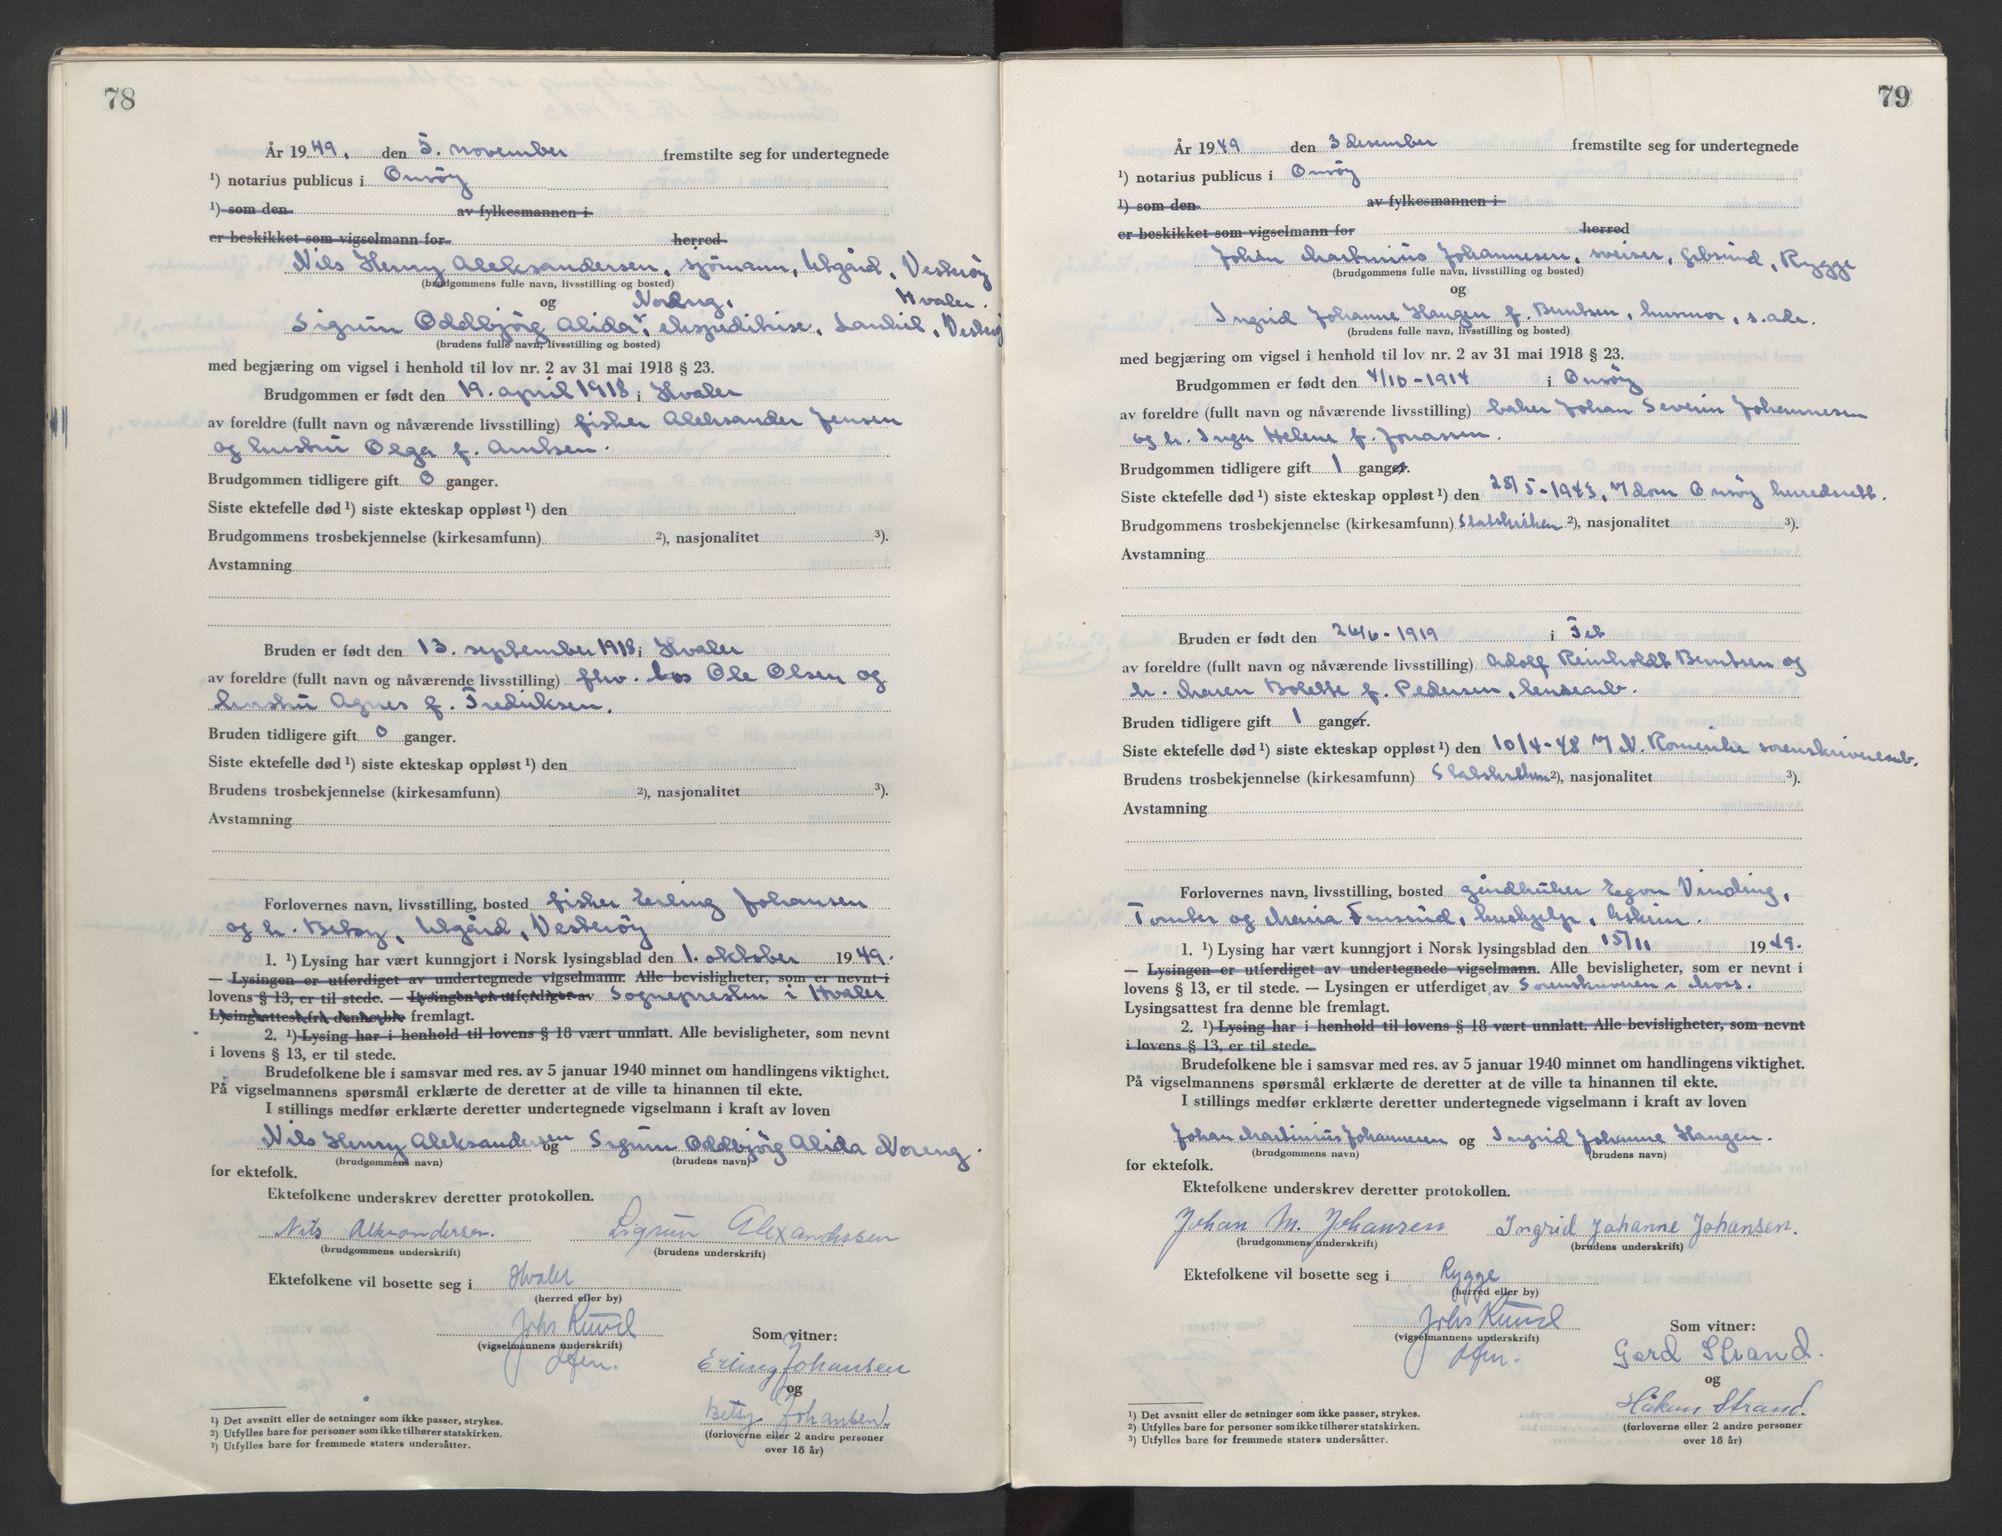 78
År 1949. den 5. november fremstilte seg for undertegnede
¹) notarius publicus i Onsöy
¹) som den av fylkesmannen i
er beskikket som vigselmann for herred
Nils Henry Aleksandersen, sjömann, Utgård, Vesteröy
(brudgommens fulle navn, livsstilling og bosted)
og Noreng, Hvaler.
Sigrun Oddbjörg Alida, ekspeditrise, Vesteröy
(brudens fulle navn, livsstilling og bosted)
med begjæring om vigsel i henhold til lov nr. 2 av 31 mai 1918 § 23.
Brudgommen er født den 19. april 1918 i Hvaler
av foreldre (fullt navn og nåværende livsstilling) fisker Aleksander Jensen
og hustru Olga f. Arntsen.
Brudgommen tidligere gift 0 ganger.
Siste ektefelle død ¹) siste ekteskap oppløst ¹) den
Brudgommens trosbekjennelse (kirkesamfunn) ²), nasjonalitet ³).
Avstamning
Bruden er født den 13. september 1918 i Hvaler
av foreldre (fullt navn og nåværende livsstilling) fhv. los Ole Olsen og
hustru Agnes f. Fredriksen.
Bruden tidligere gift 0 ganger.
Siste ektefelle død ¹) siste ekteskap oppløst ¹) den
Brudens trosbekjennelse (kirkesamfunn) ²), nasjonalitet ³).
Avstamning
Forlovernes navn, livsstilling, bosted fisker Erling Johansen
og h. Betsy, Utgård, Vesteröy
1. ¹) Lysing har vært kunngjort i Norsk lysingsblad den 1. oktober 1949.
— Lysingen er utferdiget av undertegnede vigselmann. Alle bevisligheter, som er nevnt i
lovens § 13, er til stede. — Lysingen er utferdiget av Sognepresten i Hvaler
Lysingsattest fra denne ble fremlagt.
2. ¹) Lysing har i henhold til lovens § 18 vært unnlatt. Alle bevisligheter, som nevnt
i lovens § 13, er til stede.
Brudefolkene ble i samsvar med res. av 5 januar 1940 minnet om handlingens viktighet.
På vigselmannens spørsmål erklærte de deretter at de ville ta hinannen til ekte.
I stillings medfør erklærte deretter undertegnede vigselmann i kraft av loven
Nils Henry Aleksandersen og Sigrun Oddbjörg Alida Noreng.
(brudgommens navn) (brudens navn)
for ektefolk.
Ektefolkene underskrev deretter protokollen.
Nils Alexandersen. Sigrun Alexandersen
(brudgommens underskrift) (brudens underskrift)
Ektefolkene vil bosette seg i Hvaler
(herred eller by)
Johs Kruud
(vigselmannens underskrift)
Som vitner:
Erling Johansen
og
Betsy Johansen.
(forloverne eller 2 andre personer
over 18 år)
¹) Det avsnitt eller de setninger som ikke passer, strykes.
²) Utfylles bare for personer som ikke tilhører statskirken.
³) Utfylles bare for fremmede staters undersåtter.
79
År 1949 den 3 desember fremstilte seg for undertegnede
¹) notarius publicus i Onsöy
¹) som den av fylkesmannen i
er beskikket som vigselmann for herred
Johan Martinius Johannesen, sveiser, Rygge
(brudgommens fulle navn, livsstilling og bosted)
og
Ingrid Johanne Haugen f. Berntsen, husmor, s.adr.
(brudens fulle navn, livsstilling og bosted)
med begjæring om vigsel i henhold til lov nr. 2 av 31 mai 1918 § 23.
Brudgommen er født den 4/10-1914 i Onsöy
av foreldre (fullt navn og nåværende livsstilling) baker Johan Severin Johannesen
og h. Inga Helene f. Jonassen.
Brudgommen tidligere gift 1 ganger.
Siste ektefelle død ¹) siste ekteskap oppløst ¹) den 25/5-1943, v/dom Onsöy herredsrett.
Brudgommens trosbekjennelse (kirkesamfunn) Statskirken ²), nasjonalitet ³).
Avstamning
Bruden er født den 26/6-1919 i Fet
av foreldre (fullt navn og nåværende livsstilling) Adolf Reinholdt Berntsen og
h. Maren Bolette f. Pedersen, lensearb.
Bruden tidligere gift 1 ganger.
Siste ektefelle død ¹) siste ekteskap oppløst ¹) den 10/4-48 v/ N. Romerike sorenskriveremb.
Brudens trosbekjennelse (kirkesamfunn) Statskirken ²), nasjonalitet ³).
Avstamning
Forlovernes navn, livsstilling, bosted gårdbruker Egon Vinding,
Tomter og Maria hushjelp, Askim.
1. ¹) Lysing har vært kunngjort i Norsk lysingsblad den 15/11 1949.
— Lysingen er utferdiget av undertegnede vigselmann. Alle bevisligheter, som er nevnt i
lovens § 13, er til stede. — Lysingen er utferdiget av Sorenskriveren i Moss.
Lysingsattest fra denne ble fremlagt.
2. ¹) Lysing har i henhold til lovens § 18 vært unnlatt. Alle bevisligheter, som nevnt
i lovens § 13, er til stede.
Brudefolkene ble i samsvar med res. av 5 januar 1940 minnet om handlingens viktighet.
På vigselmannens spørsmål erklærte de deretter at de ville ta hinannen til ekte.
I stillings medfør erklærte deretter undertegnede vigselmann i kraft av loven
Johan Martinius Johannesen og Ingrid Johanne Haugen.
(brudgommens navn) (brudens navn)
for ektefolk.
Ektefolkene underskrev deretter protokollen.
Johan M. Johansen Ingrid Johanne Johansen.
(brudgommens underskrift) (brudens underskrift)
Ektefolkene vil bosette seg i Rygge
(herred eller by)
Johs Kruud
(vigselmannens underskrift)
Som vitner:
Gerd Strand.
og
Håkon Strand.
(forloverne eller 2 andre personer
over 18 år)
¹) Det avsnitt eller de setninger som ikke passer, strykes.
²) Utfylles bare for personer som ikke tilhører statskirken.
³) Utfylles bare for fremmede staters undersåtter.